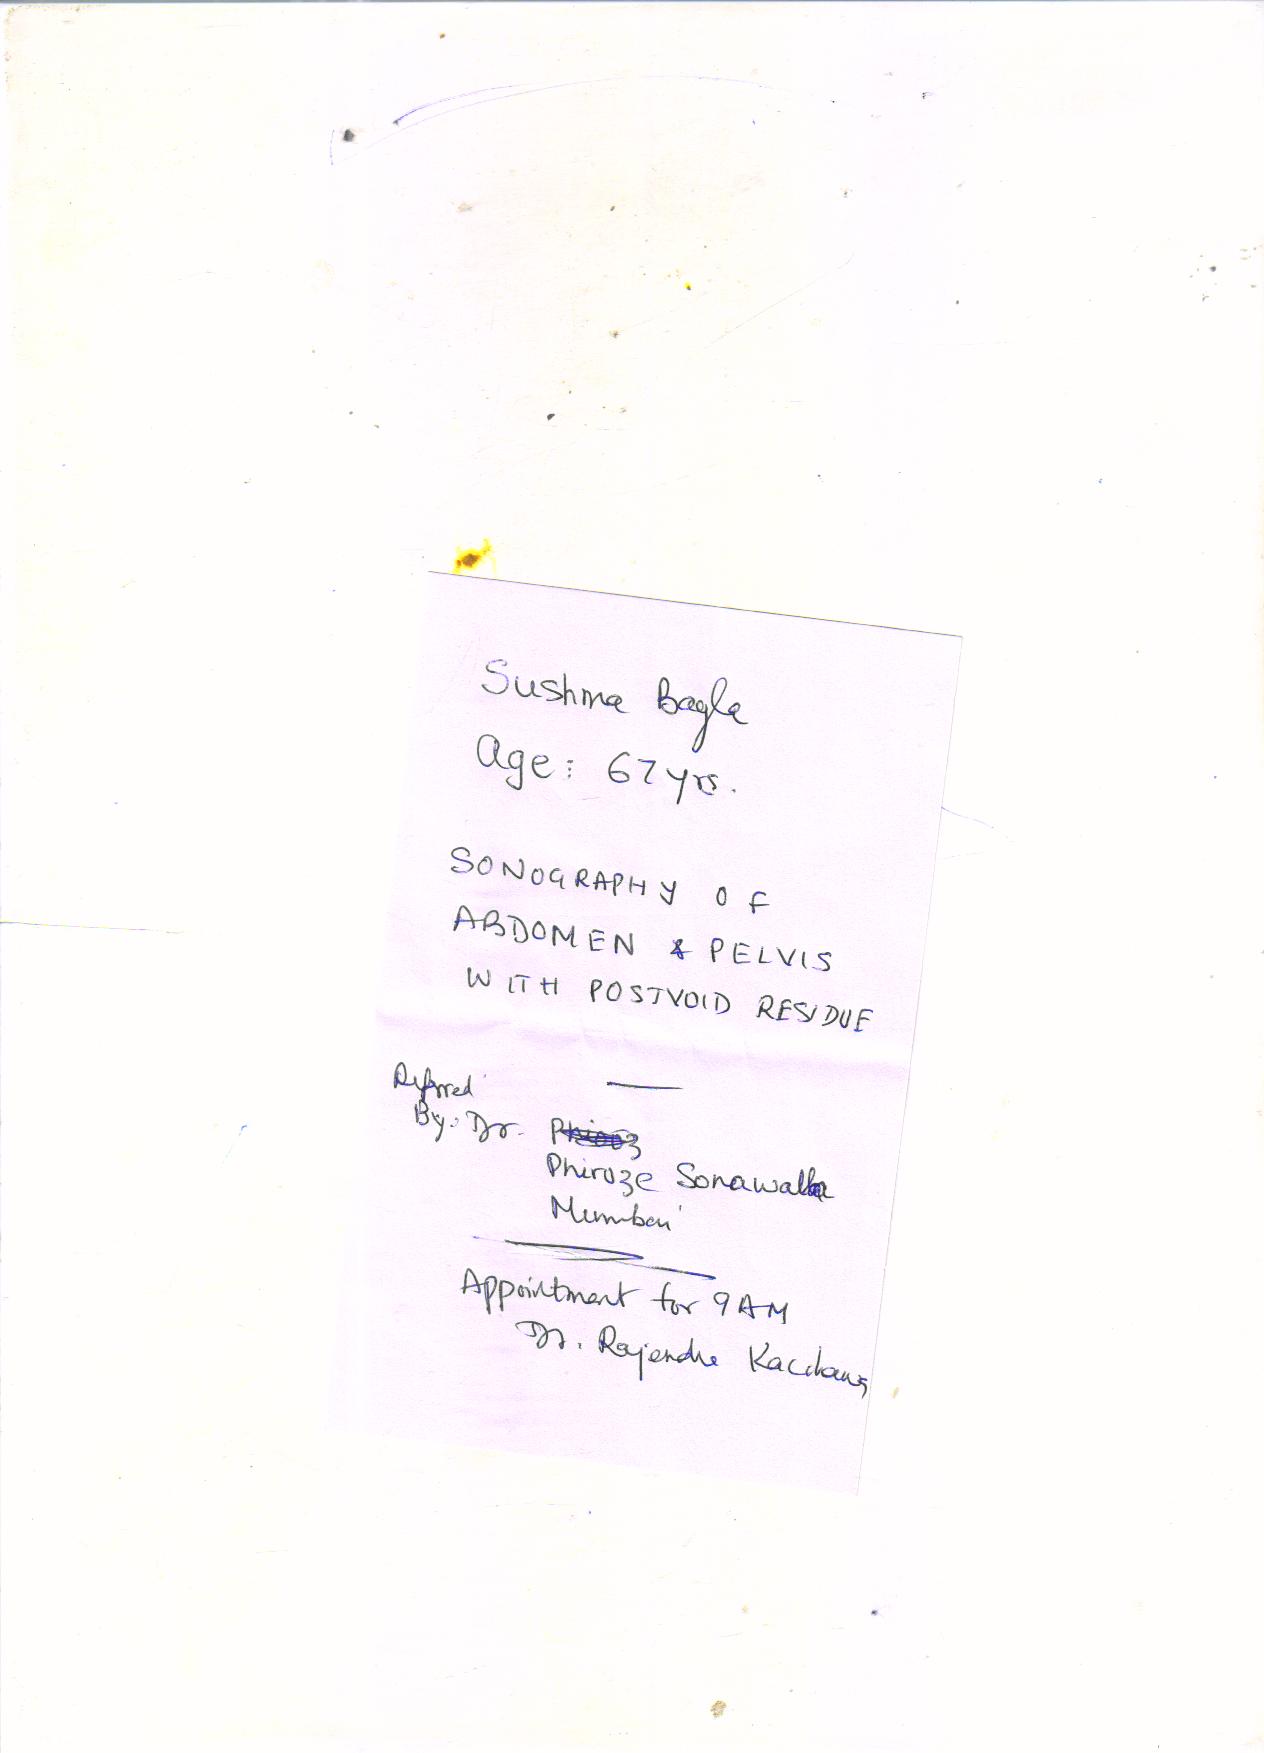 Sushma Bagla
Age: 67 yrs.
SONOGRAPHY OF
ABDOMEN & PELVIS
WITH POSTVOID RESIDUE
Referred
By: Dr.
Phiroze Sonawalla
Mumbai
Appointment for 9 AM
Dr. Rajendra